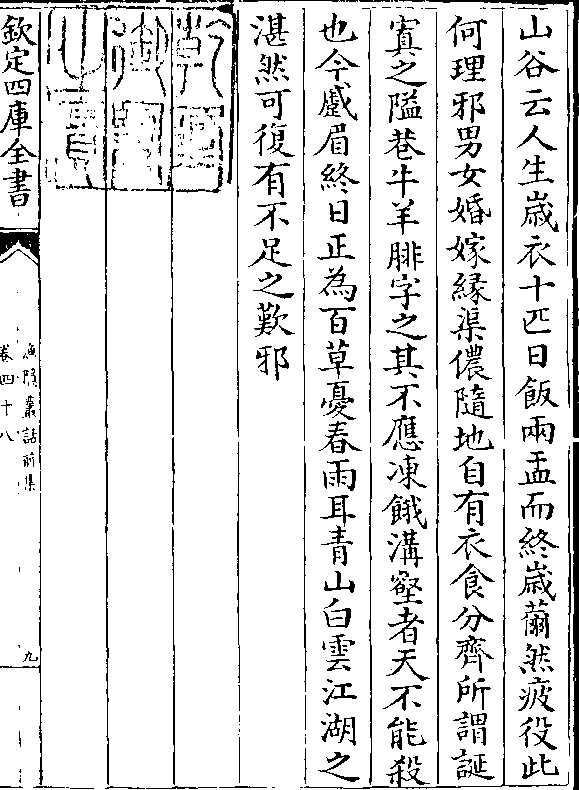 山谷云人生歳衣十匹日飯兩盂而終歳薾然疲役此
何理邪男女婚嫁縁渠儂隨地自有衣食分齊所謂誕
寘之隘巷牛羊腓字之其不應凍餓溝壑者天不能殺
也今蹙眉終日正為百草憂春雨耳青山白雲江湖之
湛然可復有不足之歎邪
乾隆御覽之寳
欽定四庫全書
漁隠叢話前集
卷四十八
九